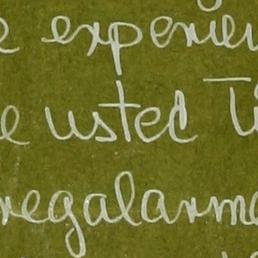 e experien
e usted Ti
regalarme